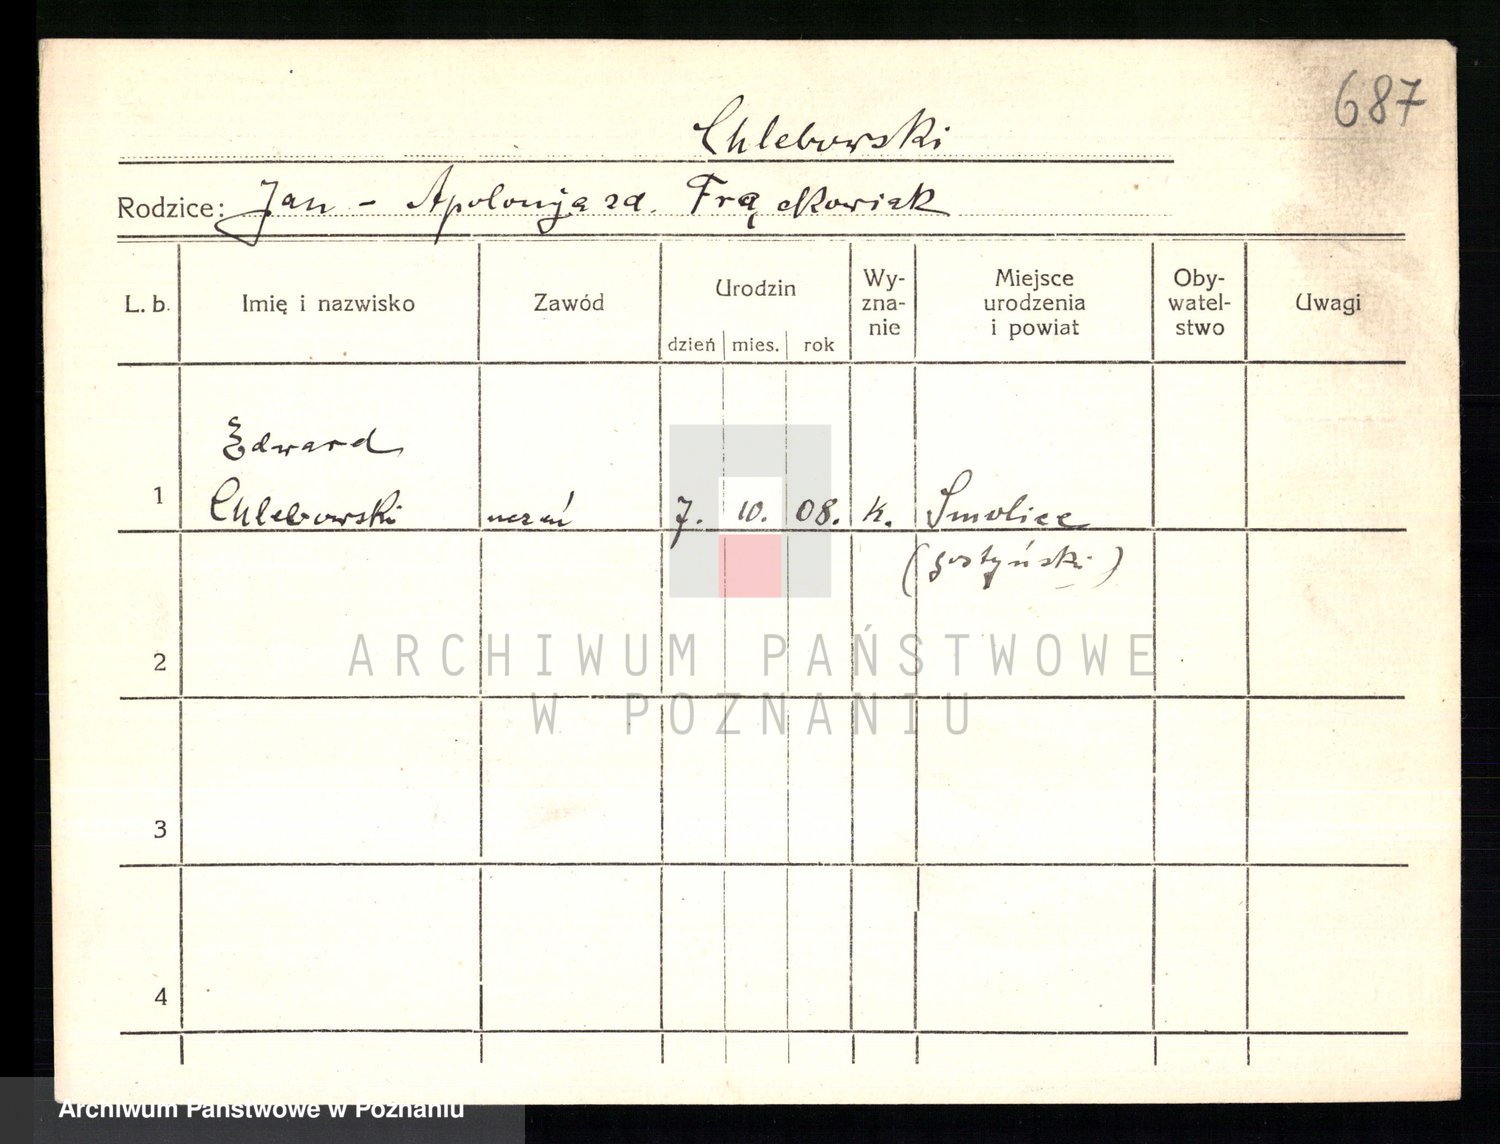 687
Chlebowski
Rodzice: Jan - Apolonja zd. Frąckowiak
L. b. Imię i nazwisko Zawód Urodzin Wy-zna-nie Miejsce urodzenia i powiat Oby-watel-stwo Uwagi
dzień mies. rok
Edward
1 Chlebowski uczeń 7. 10. 08. k. Smolice
(gostyński)
2
ARCHIWUM PAŃSTWOWE
W POZNANIU
3
4
Archiwum Państwowe w Poznaniu